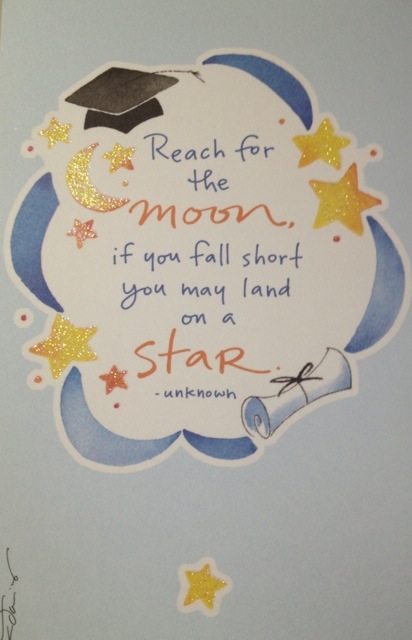 Reach for
the
moon,
if you fall short
you may land
on a
star.
-unknown